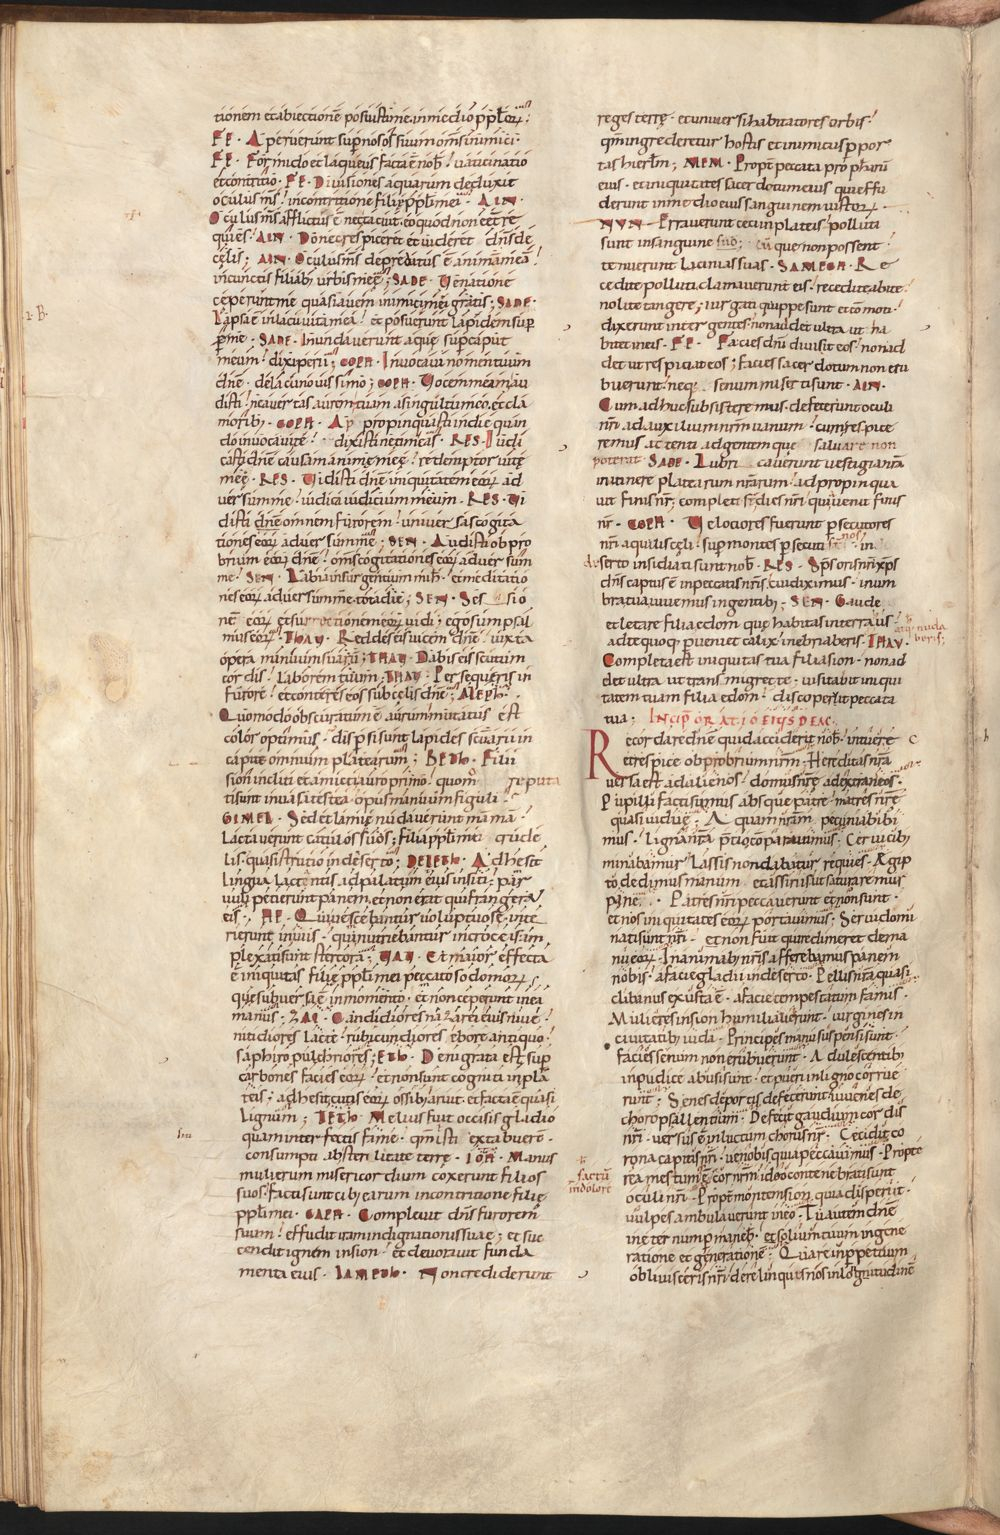 tionem et abiectionē posuisti me in medio pp̄lorꝝ.
FE · Aperuerunt sup nos os suum oms̄ inimici.
FE · Formido et laqueus facta ē nob̄. vaticinatio
et contritio · FE · Divisiones aquarum deduxit
oculus ms̄. in contritione filię pp̄li mei · AIN ·
Oculus ms̄ afflictus ē nec tacuit. eo quod non eēt re
quies. AIN · Donec respiceret et uideret dn̄s de
cęlis; AIN · Oculus ms̄ depreditus ē animā meā.
in cunctis filiab; urbis meę; SADE · Venatione
ceperunt me quasi auem inimici mei gratis; SADE ·
Lapsa ē in lacū uita mea. et posuerunt lapidem sup
p me · SADE · Inundauerunt aquę sup caput
meum. dixi perii; COPH · Inuocaui nomen tuum
dn̄e · de lacu nouissimo; COPH · Vocem meam au
disti. ne auertas aurem tuam a singultu meo. et cla
morib; · COPH · Appropinquasti in die quan
do inuocaui te. dixisti ne timeas · RES · Iudi
casti dn̄e causam animę meę. redemptor uitę
meę · RES · Vidisti dn̄e iniquitatem eorꝝ ad
versum me. iudica iudicium meum · RES · Vi
disti dn̄e omnem furorem. uniuersas cogita
tiones eorꝝ aduersum me; SEN · Audisti obpro
brium eorꝝ dn̄e. oms̄ cogitationes eorꝝ aduersum
me · SEN · Labia insurgentium mih̄. et meditatio
nes eorꝝ aduersum me tota die; SEN · Sessio
nē eorꝝ et surrectionem eorꝝ uidi. ego sum psal
mus eorꝝ · THAV · Reddes eis uicem dn̄e. iuxta
opera manuum suarū; THAV · Dabis eis scutum
cordis. laborem tuum; THAV · Persequeris in
furore. et conteres eos sub cęlis dn̄e; ALEPH ·
Quomodo obscuratum ē aurum mutatus est
color optimus. dispersi sunt lapides scuarii in
capite omnium platearum; BETH · Filii
sion incliti et amicti auro primo. quom̄o reputa
ti sunt in uasa testea. opus manuum figuli
GIMEL · Sed et lamię nudauerunt mammā.
lactauerunt catulos suos; filia pp̄li mei crude
lis. quasi strutio in deserto; DELETH · Adhesit
lingua lactentis ad palatum eius in siti. par
vuli petierunt panem. et non erat qui frangeret
eis · HE · Qui uescebantur uoluptuose. inte
rierunt in uiis. qui nutriebantur in croceis. am
plexati sunt stercora; VAV · Et maior effecta
ē iniquitas filię pp̄li mei peccato sodomorꝝ.
quę subuersa ē in momento. et non ceperunt in ea
manus; ZAI · Candidiores nazarei eius niue.
nitidiores lacte. rubicundiores ebore antiquo.
saphiro pulchriores; ETH · Denigrata est sup
carbones facies eorꝝ. et non sunt cogniti in pla
teis. adhesit cutis eorꝝ ossib. aruit et facta ē quasi
lignum; TETH · Melius fuit occisis gladio
quam interfectis fame. qm̄ isti extabuerē ·
consumpti ab sterilitate terrę · IOTH · Manus
mulierum misericordium coxerunt filios
suos. facti sunt cib; earum in contritione filię
pp̄li mei · CAPH · Compleuit dn̄s furorem
suum. effudit iram indignationis suae. et suc
cendit ignem in sion. et deuorauit funda
menta eius · LAMETH · Non crediderunt
reges terrę. et uniuersi habitatores orbis.
qm̄ ingrederetur hostis et inimicus p por
tas hierlm̄; MEM · Propt peccata propharū
eius. et iniquitates sacerdotum eius qui effu
derunt in medio eius sanguinem iustorꝝ ·
NVN · Errauerunt ceci in plateis. polluti
sunt in sanguine suo; cūque non possent.
tenuerunt lacinias suas · SAMECH · Re
cedite polluti. clamauerunt eis. recedite abite.
nolite tangere; iurgati quippe sunt et cōmoti.
dixerunt inter gentes. non addet ultra ut ha
bitet in eis · FE · Facies dn̄i diuisit eos. non ad
det ut respiciat eos; facies sacerdotum non eru
buerunt. neq; senum miserti sunt · AIN ·
Cum adhuc subsisteremus. defecerunt oculi
nr̄i ad auxilium nr̄m uanum. cum respice
remus attenti ad gentem que saluare non
poterat SADE · Lubricauerunt uestigia nr̄a
in itinere platearum nr̄arum. adpropinqua
uit finis nr̄. completi st̄ dies nr̄i quia uenit finis
nr̄ · COPH · Velociores fuerunt p secutores
nr̄i aquilis cęli. sup montes p secuti st̄ nos. in
deserto insidiati sunt nob̄ · RES · Sp̄s oris nr̄i xp̄s
dn̄s captus ē in peccatis nr̄is. cui diximus. in um
bra tua uiuemus in gentib; · SEN · Gaude
et letare filia edom. quę habitas in terra us.
ad te quoq; p ueniet calix. inebriaberis. THAV ·
atq; nuda
beris;
Completa est iniquitas tua filia sion. non ad
det ultra ut transmigret te. uisitabit iniqui
tatem tuam filia edom. discoperuit peccata
tua; INCIP̄ ORATIO EIVSDEM.
Recordare dn̄e quid acciderit nob̄. intuere
et respice obprobrium nr̄m; Hereditas nr̄a
versa est ad alienos. domus nr̄ę ad extraneos ·
Pupilli facti sumus absque patre. matres nr̄ę
quasi uiduę. Aquam nr̄am pecunia bibi
mus. ligna nr̄a p̄tio cōparauimus; Ceruicib;
minabamur. lassis non dabatur requies · Aegip
to dedimus manum. et assiriis ut saturaremur
pane · Patres nr̄i peccauerunt et non sunt.
et nos iniquitates eorꝝ portauimus; Serui domi
nati sunt nr̄i. et non fuit qui redimeret de ma
nu eorꝝ. In animab; nr̄is afferebamus panem
nobis. a facie gladii in deserto · Pellis nr̄a quasi
clibanus exusta ē. a facie tempestatum famis ·
Mulieres in sion humiliauerunt. uirgines in
ciuitatib; iuda · Principes manu suspensi sunt.
facies senum non erubuerunt · Adulescentib;
inpudice abusi sunt. et pueri in ligno corrue
runt; Senes de portis defecerunt. iuuenes de
choro psallentium. Defecit gaudium cordis
nr̄i. uersus ē in luctum chorus nr̄. Cecidit co
rona capitis nr̄i. ue nobis quia peccauimus · Propte
rea męstum ē cor nr̄m ideo contenebrati sunt
factū
in dolore
oculi nr̄i · Propt montem sion. quia disperiit.
vulpes ambulauerunt in eo · Tu autem dn̄e
in eternum p maneb;. et solium tuum in gene
ratione et generationē. Quare in p petuum
obliuisceris nr̄i. derelinquis nos in longitudinē